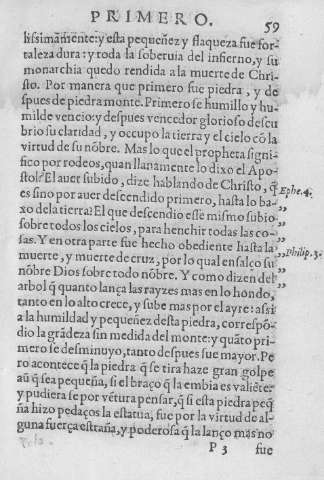 PRIMERO. 59
lissimamẽte: y esta pequeñez y flaqueza fue for-
taleza dura: y toda la soberuia del infierno, y su
monarchia quedo rendida a la muerte de Chri-
sto. Por manera que primero fue piedra, y de
spues de piedra monte. Primero se humillo y hu-
milde vencio: y despues vencedor glorioso descu
brio su claridad, y occupo la tierra y el cielo cõ la
virtud de su nõbre. Mas lo que el propheta signi-
fico por rodeos, quan llanamente lo dixo el Apo-
stol? El auer subido, dize hablando de Christo, q̃ Ephe. 4.
es sino por auer descendido primero, hasta lo ba- ”
xo de la tierra? El que descendio esse mismo subio ”
sobre todos los cielos, para henchir todas las co- ”
sas. Y en otra parte fue hecho obediente hasta la ”
muerte, y muerte de cruz, por lo qual ensalço su ” Philip. 3.
nõbre Dios sobre todo nõbre. Y como dizen del ”
arbol q̃ quanto lança las rayzes mas en lo hondo,
tanto en lo alto crece, y sube mas por el ayre: assi
a la humildad y pequeñez desta piedra, correspõ-
dio la grãdeza sin medida del monte: y quãto pri-
mero se desminuyo, tanto despues fue mayor. Pe
ro acontece q̃ la piedra q̃ se tira haze gran golpe
aũ q̃ sea pequeña, si el braço q̃ la embia es valiẽte:
y pudiera se por vẽtura pensar, q̃ si esta piedra peq̃
ña hizo pedaços la estatua, fue por la virtud de al-
guna fuerça estraña, y poderosa q̃ la lanço mas no
P 3 fue